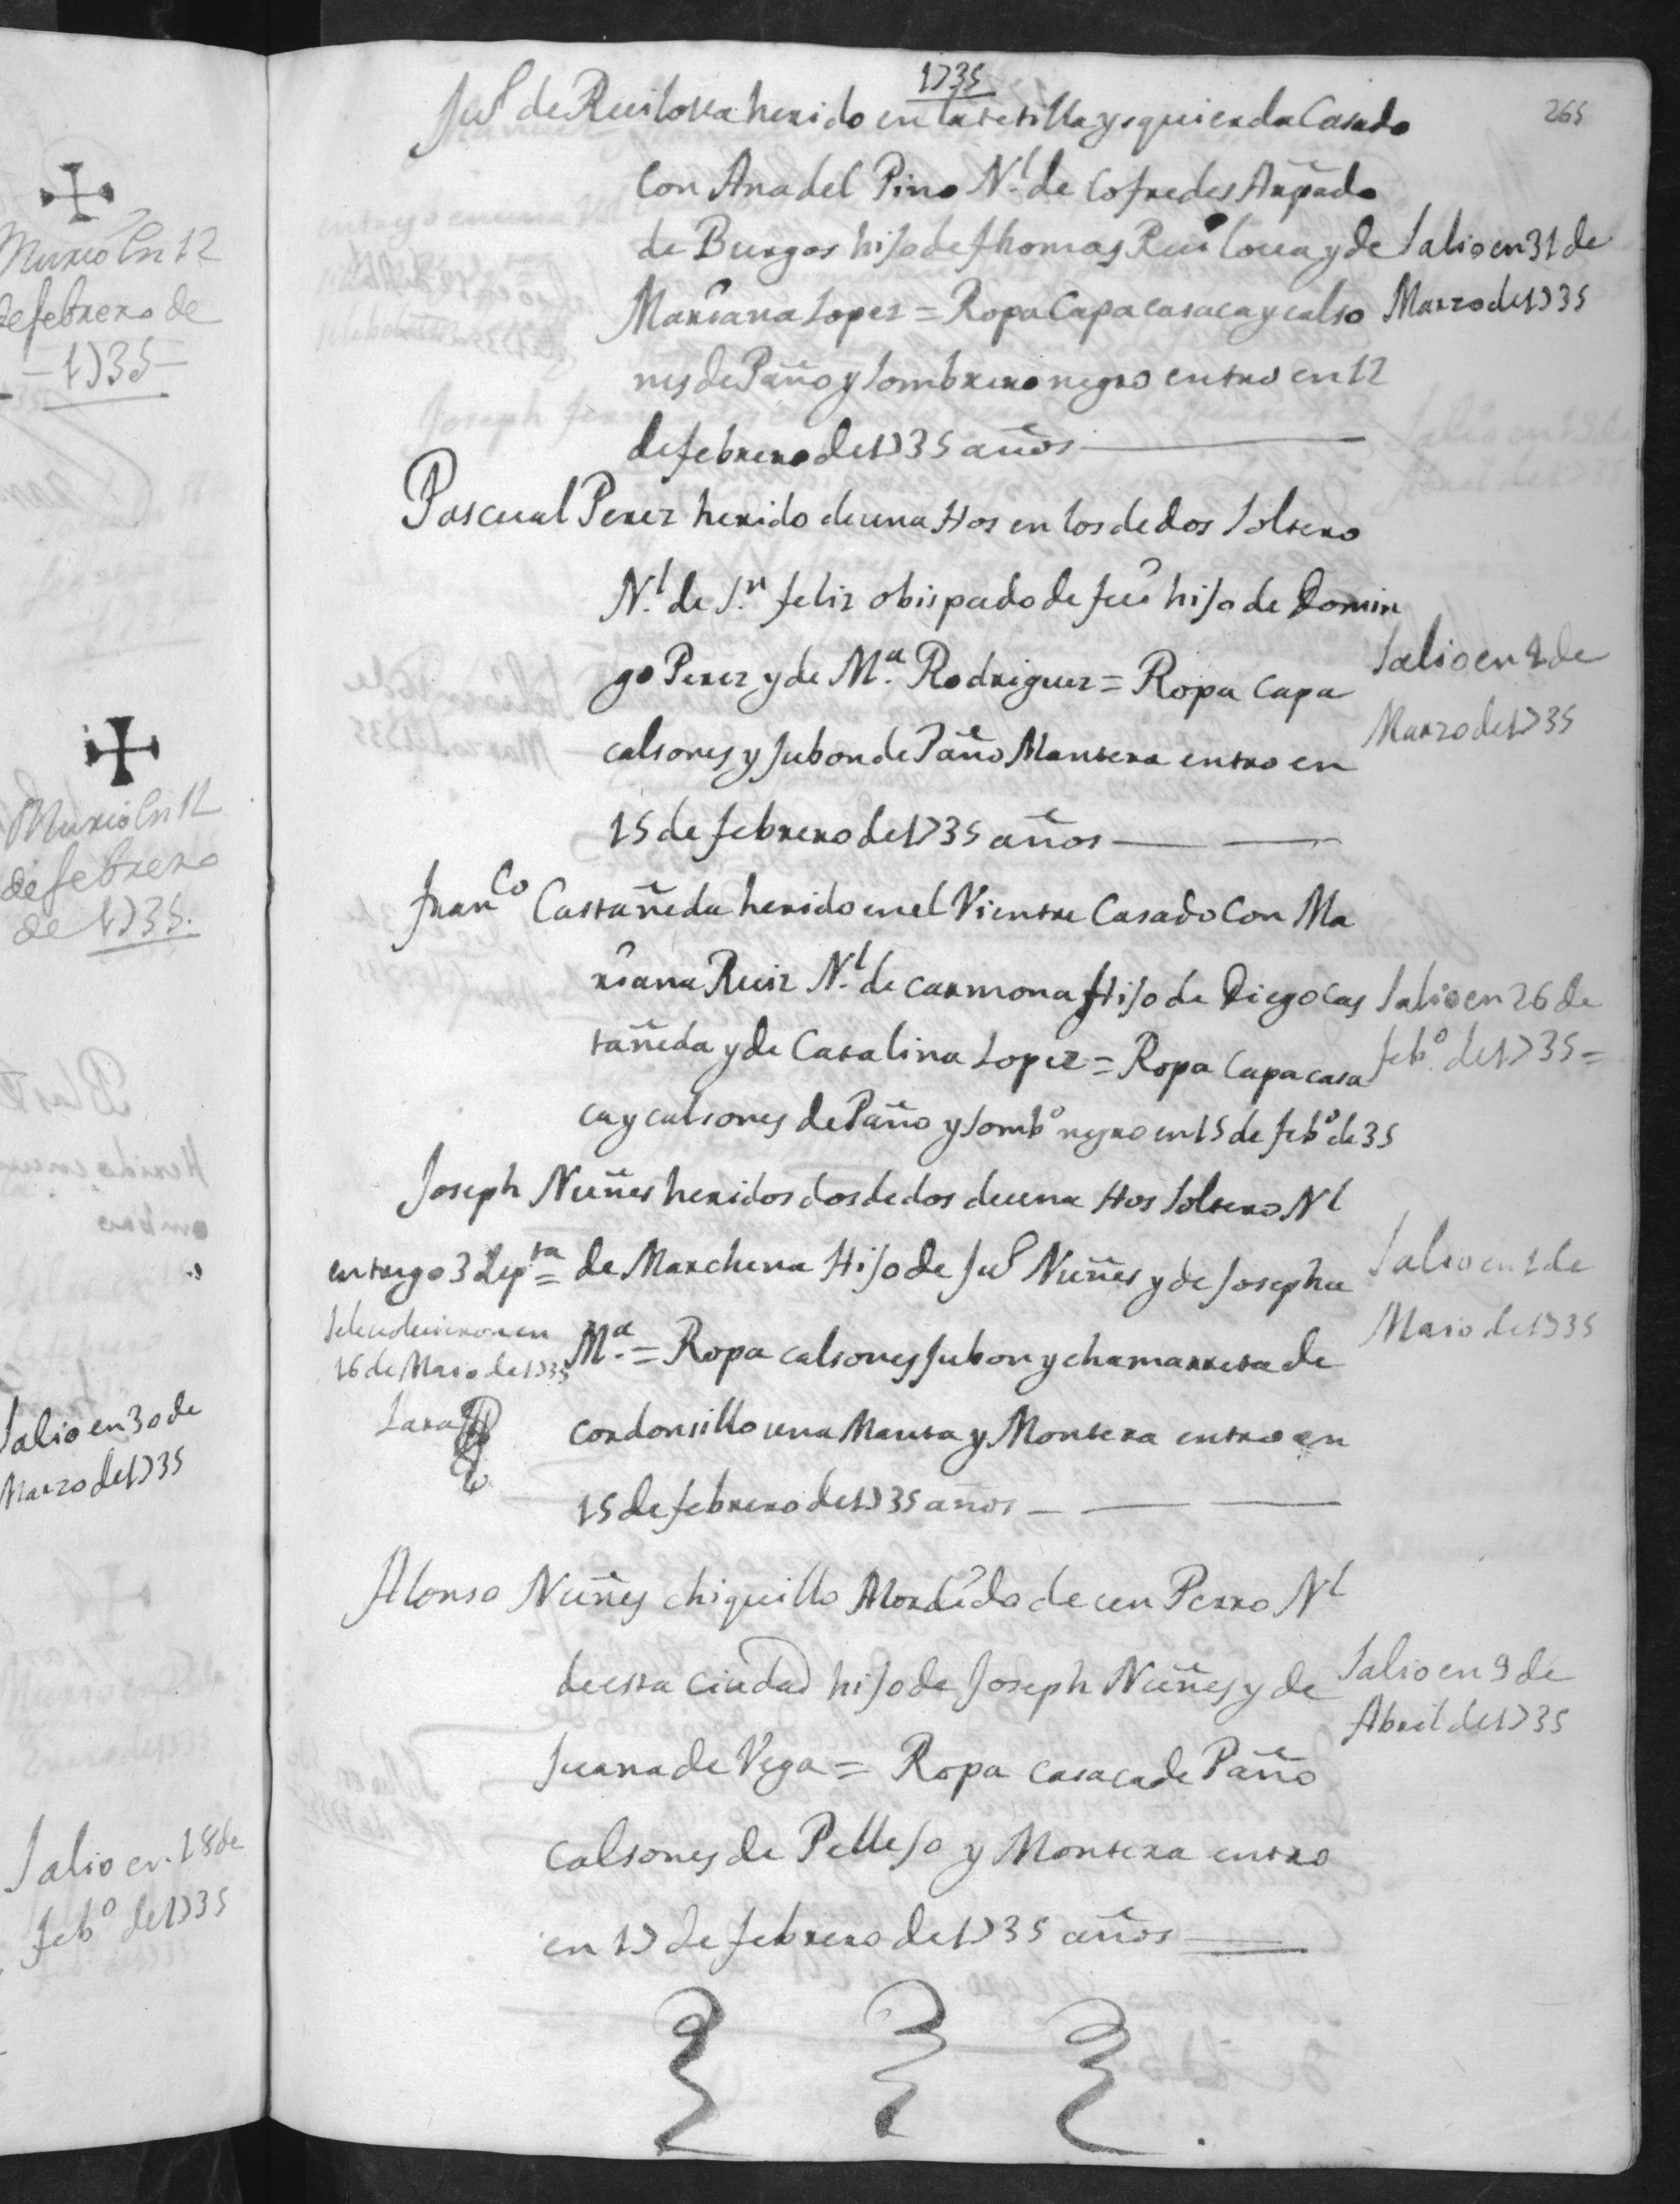 Murió en 12
de febrero de
-1735-
Murió en 12
de febrero
de 1735.
Salio en 30 de
Marzo de 1735
Salio en 18 de
febº de 1735
1735
265
Juº de Ruiloua herido en la tetilla ysquierda Casado
con Ana del Pino N.l de Cofredes Arpado
de Burgos hijo de thomas Rui loua y de
Mariana Lopez = Ropa Capa casaca y calso
nes de Paño y sombrero negro entro en 12
de febrero de 1735 años
Salio en 31 de
Marzo de 1735
Pascual Perez herido de una Hos en los dedos soltero
N.l de S.n feliz obispado de tui hijo de Domin
go Perez y de M.a Rodriguez = Ropa Capa
calsones y Jubon de Paño Montera entro en
15 de febrero de 1735 años
Salio en 2 de
Marzo de 1735
Fran.co Castañeda herido en el Vientre Casado Con Ma
riana Ruiz N.l de carmona Hijo de Diego Cas
tañeda y de Catalina Lopez = Ropa Capa casa
ca y calsones de Paño y sombº negro en 15 de febº de 35
Salio en 26 de
febº de 1735 =
Joseph Nuñes heridos dos dedos de una Hos soltero Nl
de Marchena Hijo de Juº Nuñes y de Josepha
M.a = Ropa calsones Jubon y chamarreta de
cordonsillo una Manta y Montera entro en
15 de febrero de 1735 años
entrego 3
16 de Maio de 1735
Lara
Salio en 1 de
Maio de 1735
Alonso Nuñes chiquillo Mordido de un Perro Nl
de esta Ciudad hijo de Joseph Nuñes y de
Juana de Vega = Ropa casaca de Paño
Calsones de Pellejo y Montera entro
en 17 de febrero de 1735 años
Salio en 9 de
Abril de 1735